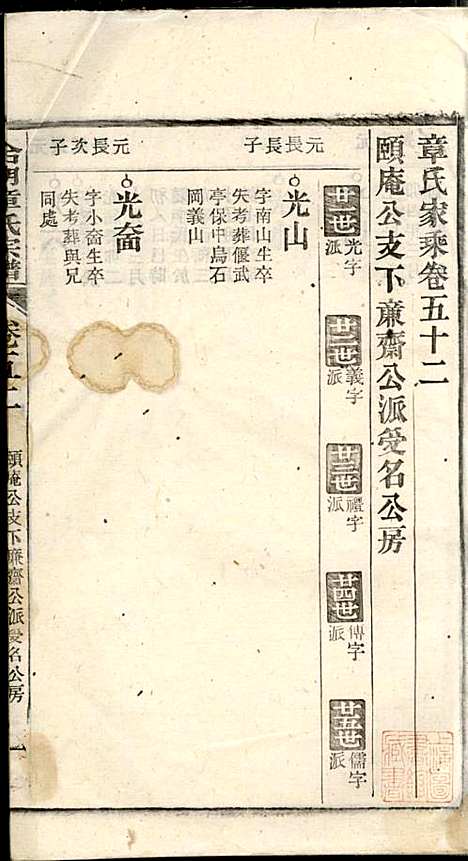 章氏家乘卷五十二
頤庵公支下亷齋公派受名公房
廿一世光字派
廿二世義字派
廿三世禮字派
廿四世傳字派
廿五世儒字派
元長長子
光山
字南山生卒
失考葬偃武
亭保中烏石
岡義山
元長次子
光奋
字小奋生卒
失考葬與兄
同處
章氏宗譜
卷五十二
頤庵公支下亷齋公派受名公房
一